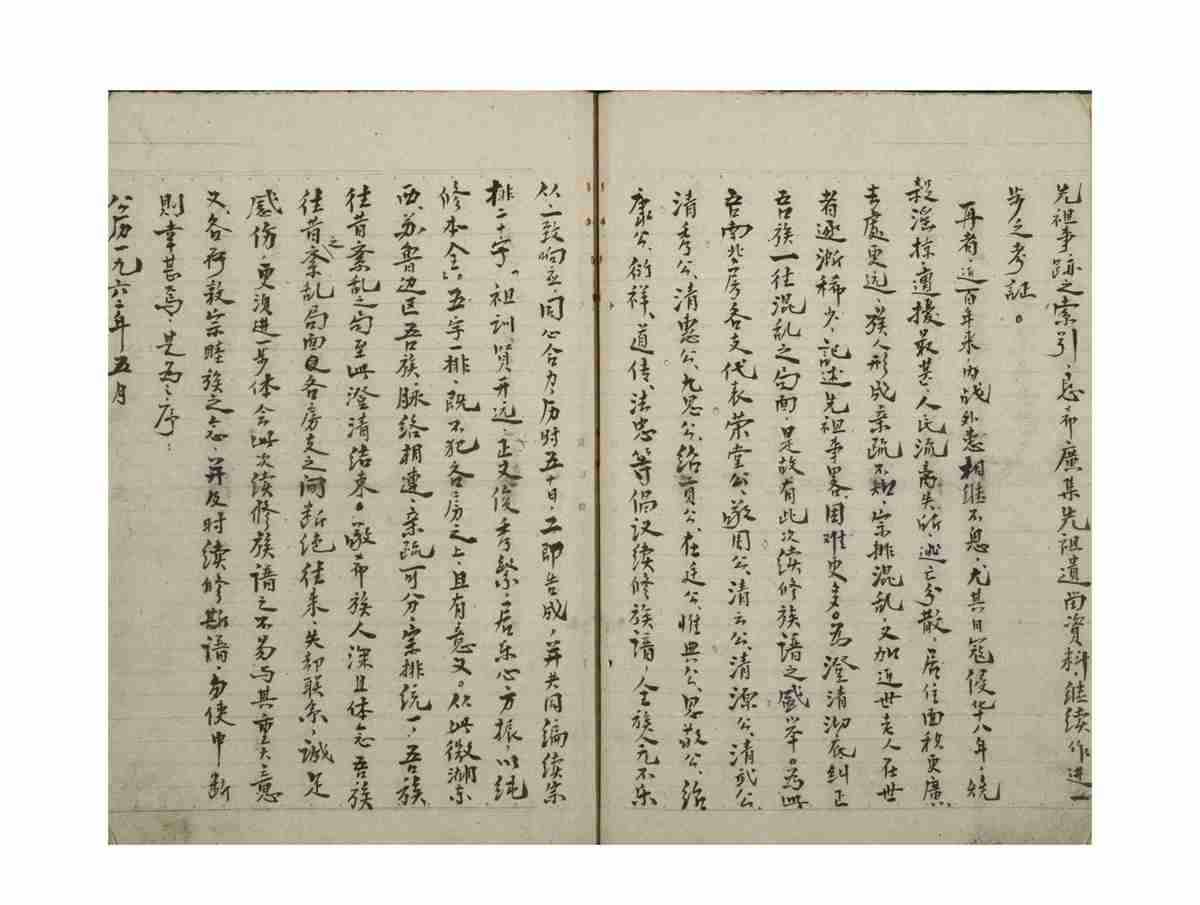 先祖事跡之索引，急希廣集先祖遺留資料，继续作进一
步之考証。
再者，近百年来，内战外患相继不息，尤其日寇侵华八年，烧
殺淫掠，遭擾最甚，人民流离失所，逃亡分散，居住面积更廣
去處更远，族人形成亲疏不知，宗排混乱，又加近世老人在世
者逐渐稀少，記述先祖事畧，困难更多。为澄清沏底纠正
吾族一往混乱之局面，是故有此次续修族譜之盛举。为此
吾南北房各支代表荣堂公、敬周公、清云公、清源公、清武公、
清秀公、清憲公、九思公、绍贡公、在廷公、惟典公、思敬公、绍
康公、衍祥、道传、法忠等倡议续修族譜，全族人元不乐
从，一致响应，同心合力，历时五十日，工即告成，并共同编续宗
排二十字“祖训贤开远，正文俊秀繁，居乐心方振，以纯
修本全”。五字一排，既不犯各房之上，且有意义。从此微湖东
西、苏鲁边区吾族脉络相連，亲疏可分，宗排统一，吾族
往昔紊乱之局至此澄清结束。敬希族人深且体念吾族
往昔紊乱之局面及各房支之间断绝往来，失却联系，诚足
感伤，更须进一步体会此次续修族譜之不易与其重大意
义，各存敦宗睦族之念，并及时续修斯譜，勿使中断
则幸甚焉，是为之序：
公历一九六二年五月